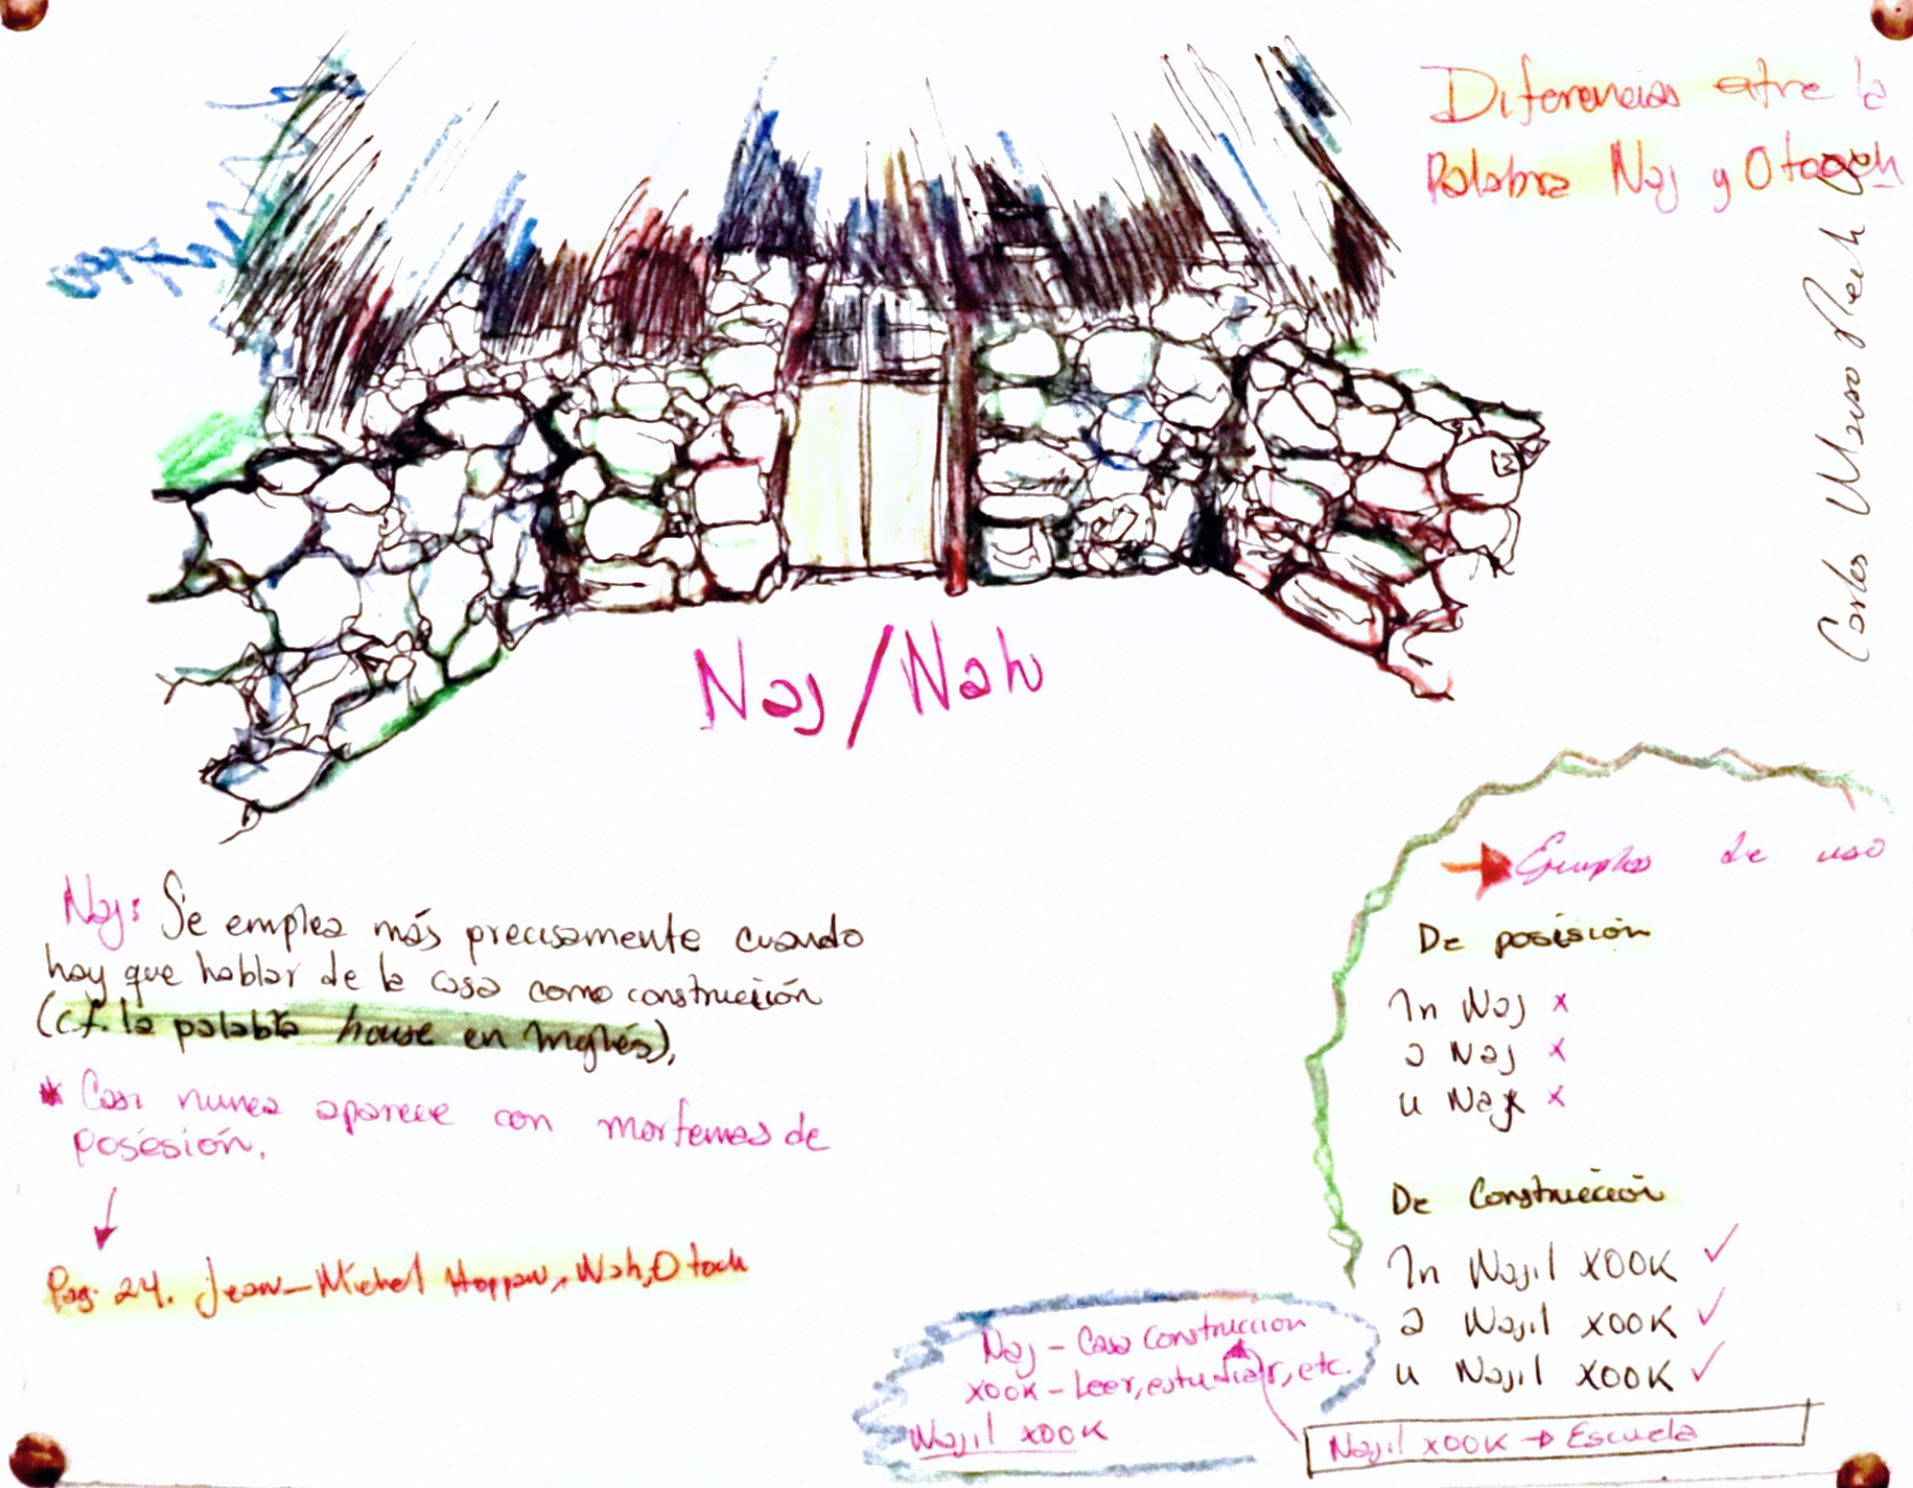 Diferencias etre la
Palabra Naj y Otooch
Carlos
Naj/Nah
Naj: Se emplea más precisamente cuando
hay que hablar de la casa como construcción
(cf. la palabra house en Inglés),
* Casi nunca aparece con morfemas de
posésión.
Pag. 24. Jean-Michel Hoppan, Nah, Otoch
Ejemplos de uso
De posisión
In Naj x
a Naj x
u Naj x
De Construcción
In Najil XOOK ✓
a Najil XOOK ✓
u Najil XOOK ✓
Naj - Casa Construccion
XOOK - Leer, estudiar, etc.
Najil XOOK
Najil XOOK → Escuela